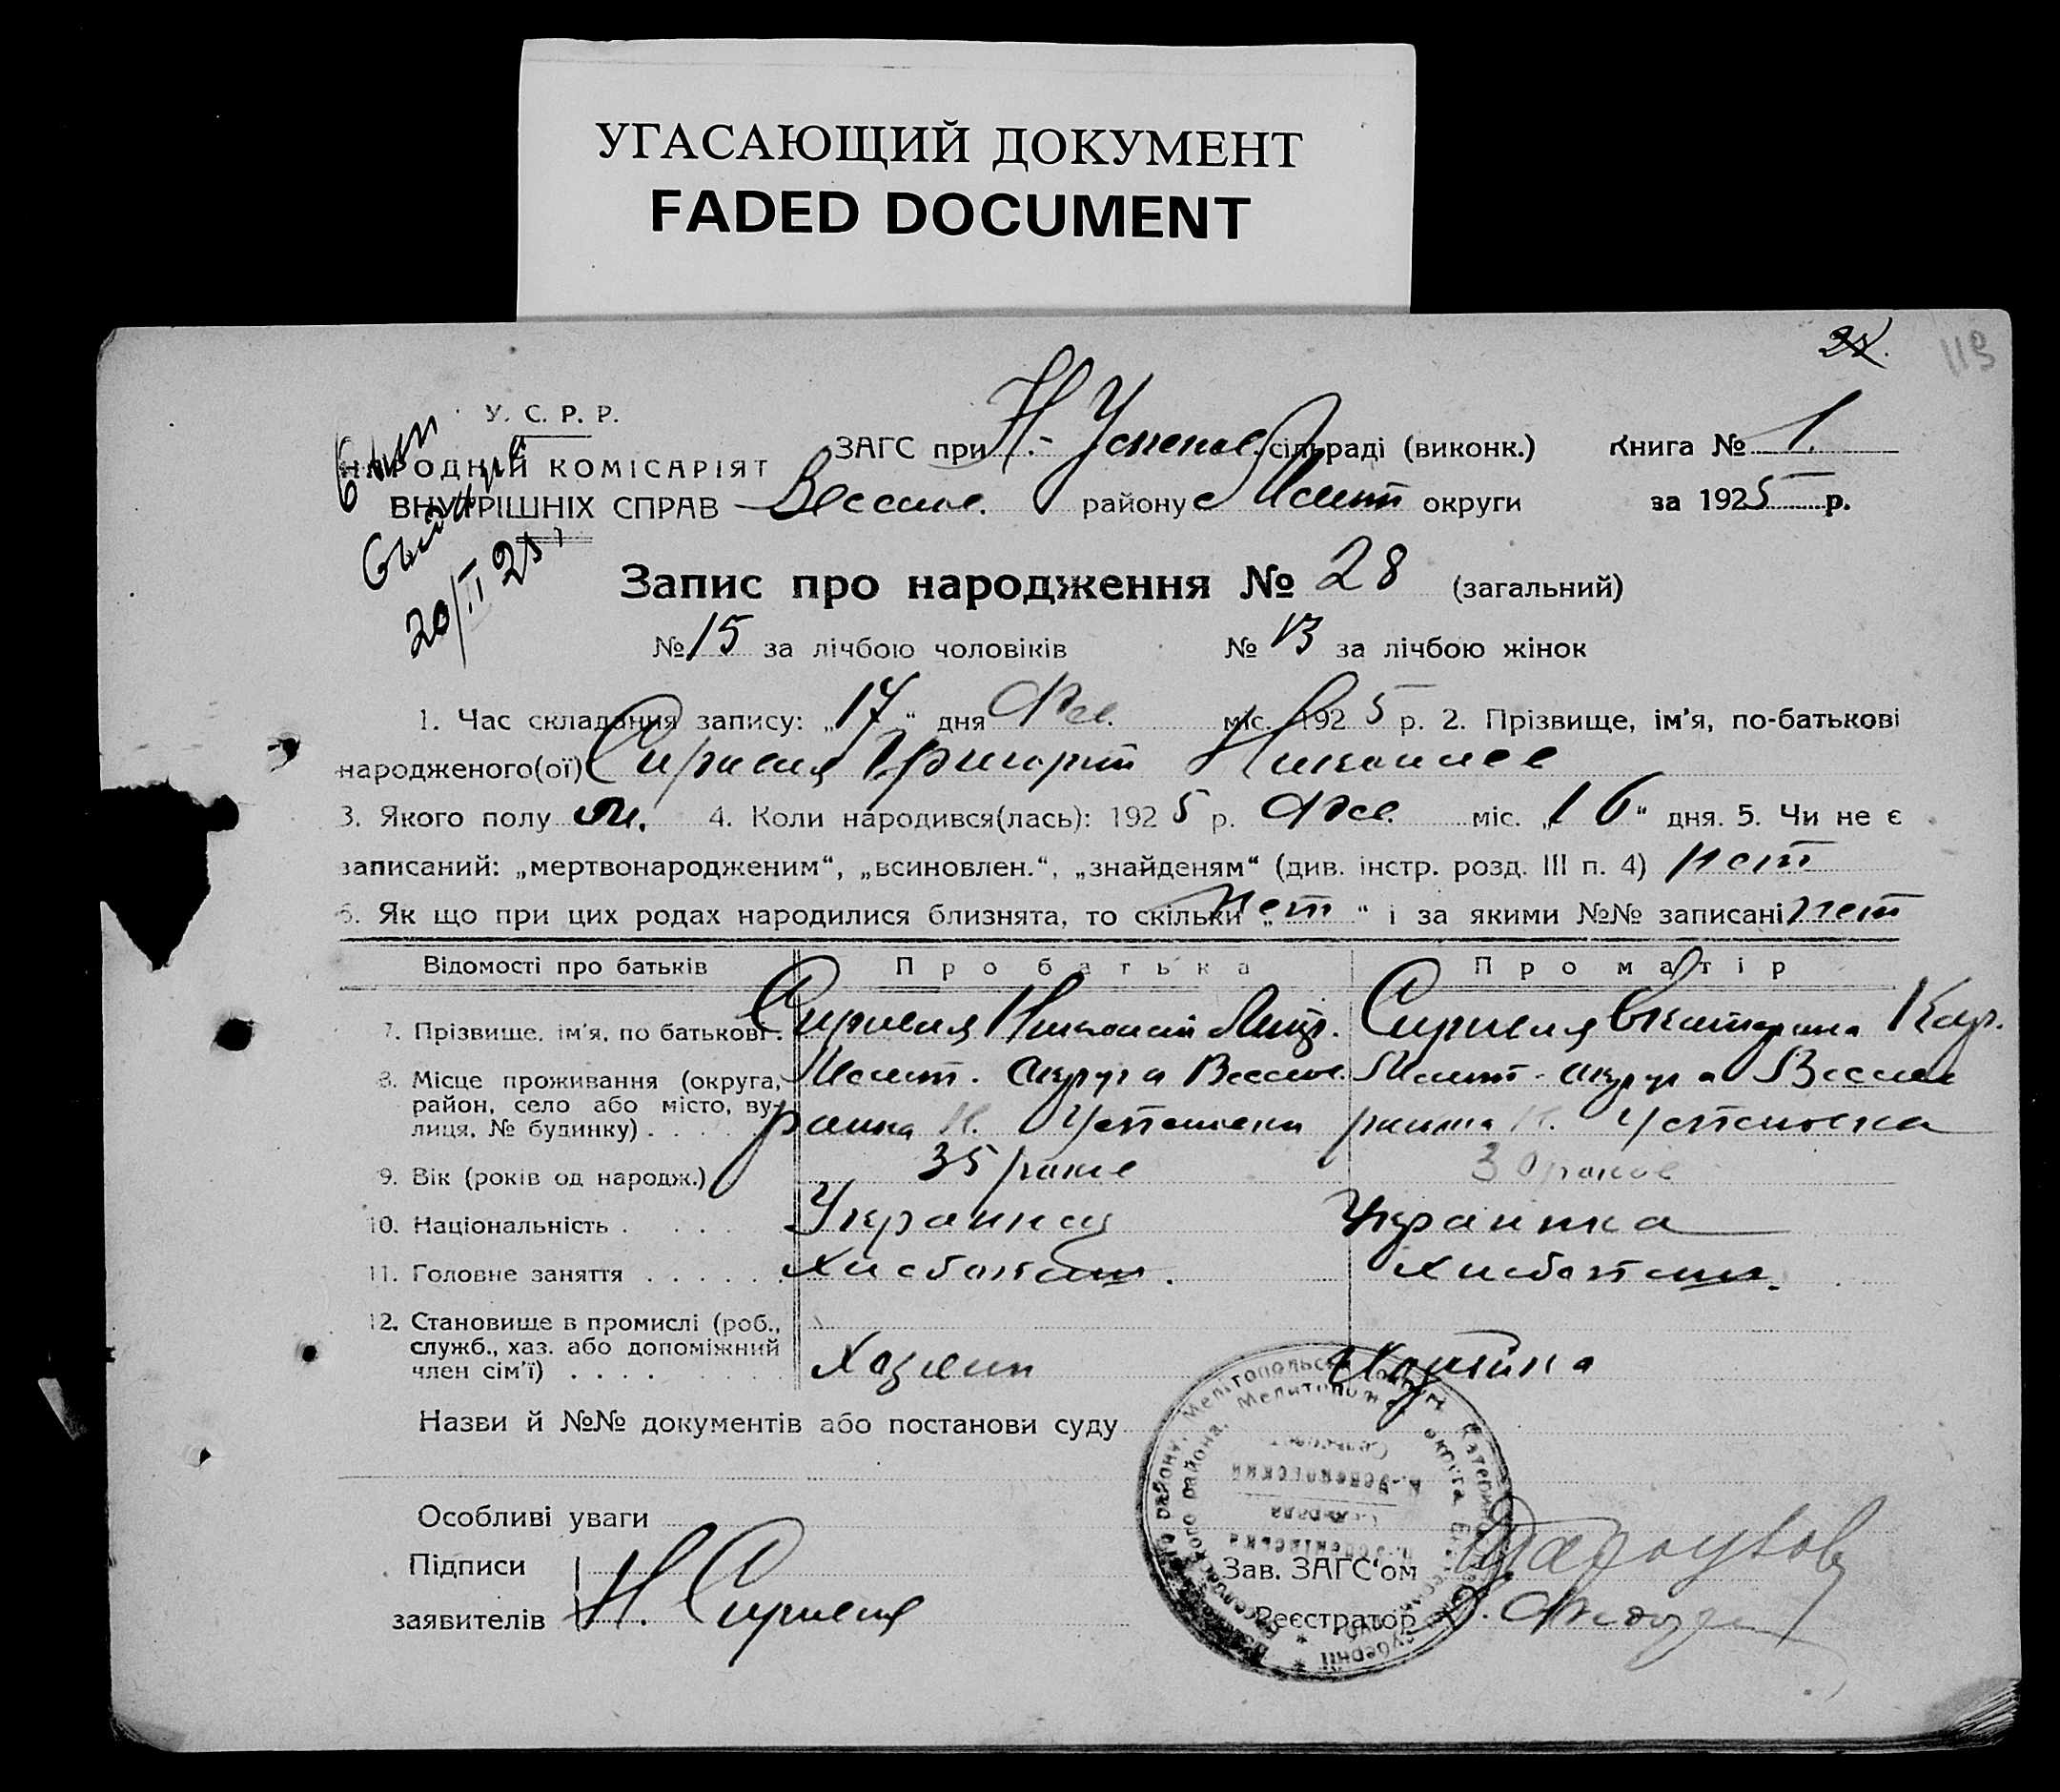 УГАСАЮЩИЙ ДОКУМЕНТ
FADED DOCUMENT
113
У. С. Р. Р.
НАРОДНІЙ КОМІСАРІЯТ
ВНУТРІШНІХ СПРАВ
20/II 25
ЗАГС при Н.- Успенов. сільраді (виконк.)
Весел. району Мелит округи
Книга № 1.
за 1925 р.
Запис про народження № 28 (загальний)
№ 15 за лічбою чоловіків № 13 за лічбою жінок
1. Час складання запису: „17“ дня Фев. міс. 1925 р. 2. Прізвище, ім'я, по-батькові
народженого(ої) Григорий Николаев
3. Якого полу м. 4. Коли народився(лась): 1925 р. Фев. міс. „16“ дня. 5. Чи не є
записаний: „мертвонародженим“, „всиновлен.“, „знайденям“ (див. інстр. розд. III п. 4) нет
6. Як що при цих родах народилися близнята, то скільки „нет“ і за якими №№ записані нет
Відомості про батьків Про батька Про матір
7. Прізвище, ім'я, по батькові. Николай Екатерина
8. Місце проживання (округа, район, село або місто, вулиця, № будинку) . . . Мелит. округа Весел. Мелит. округа Весел
района Н. района Н.
9. Вік (років од народж.) 35 30
10. Національність . . . . Украинец Украинка
11. Головне заняття . . . . . . Хлебопаш. Хлебопаш.
12. Становище в промислі (роб., служб., хаз. або допоміжний член сім'ї) . . . . Хозяин Хозяйка
Назви й №№ документів або постанови суду
Особливі уваги
Підписи
заявителів Н.
Зав. ЗАГС'ом
Реєстратор